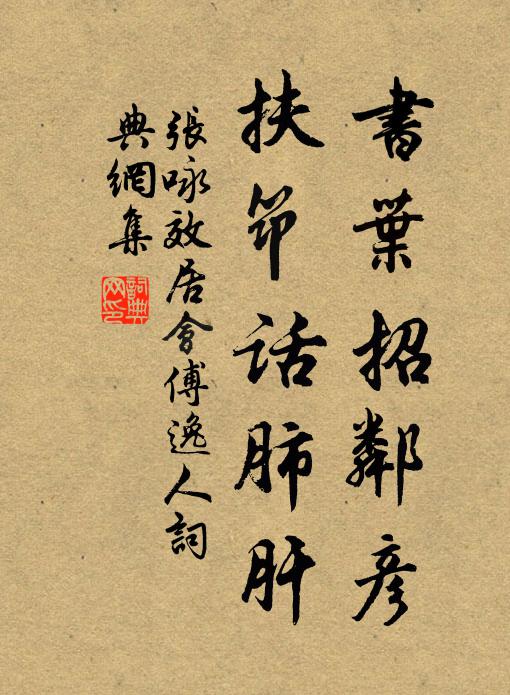 書葉招鄰彥
扶筇話肺肝
張咏效居會傅逸人詞
典網集
詞典網印